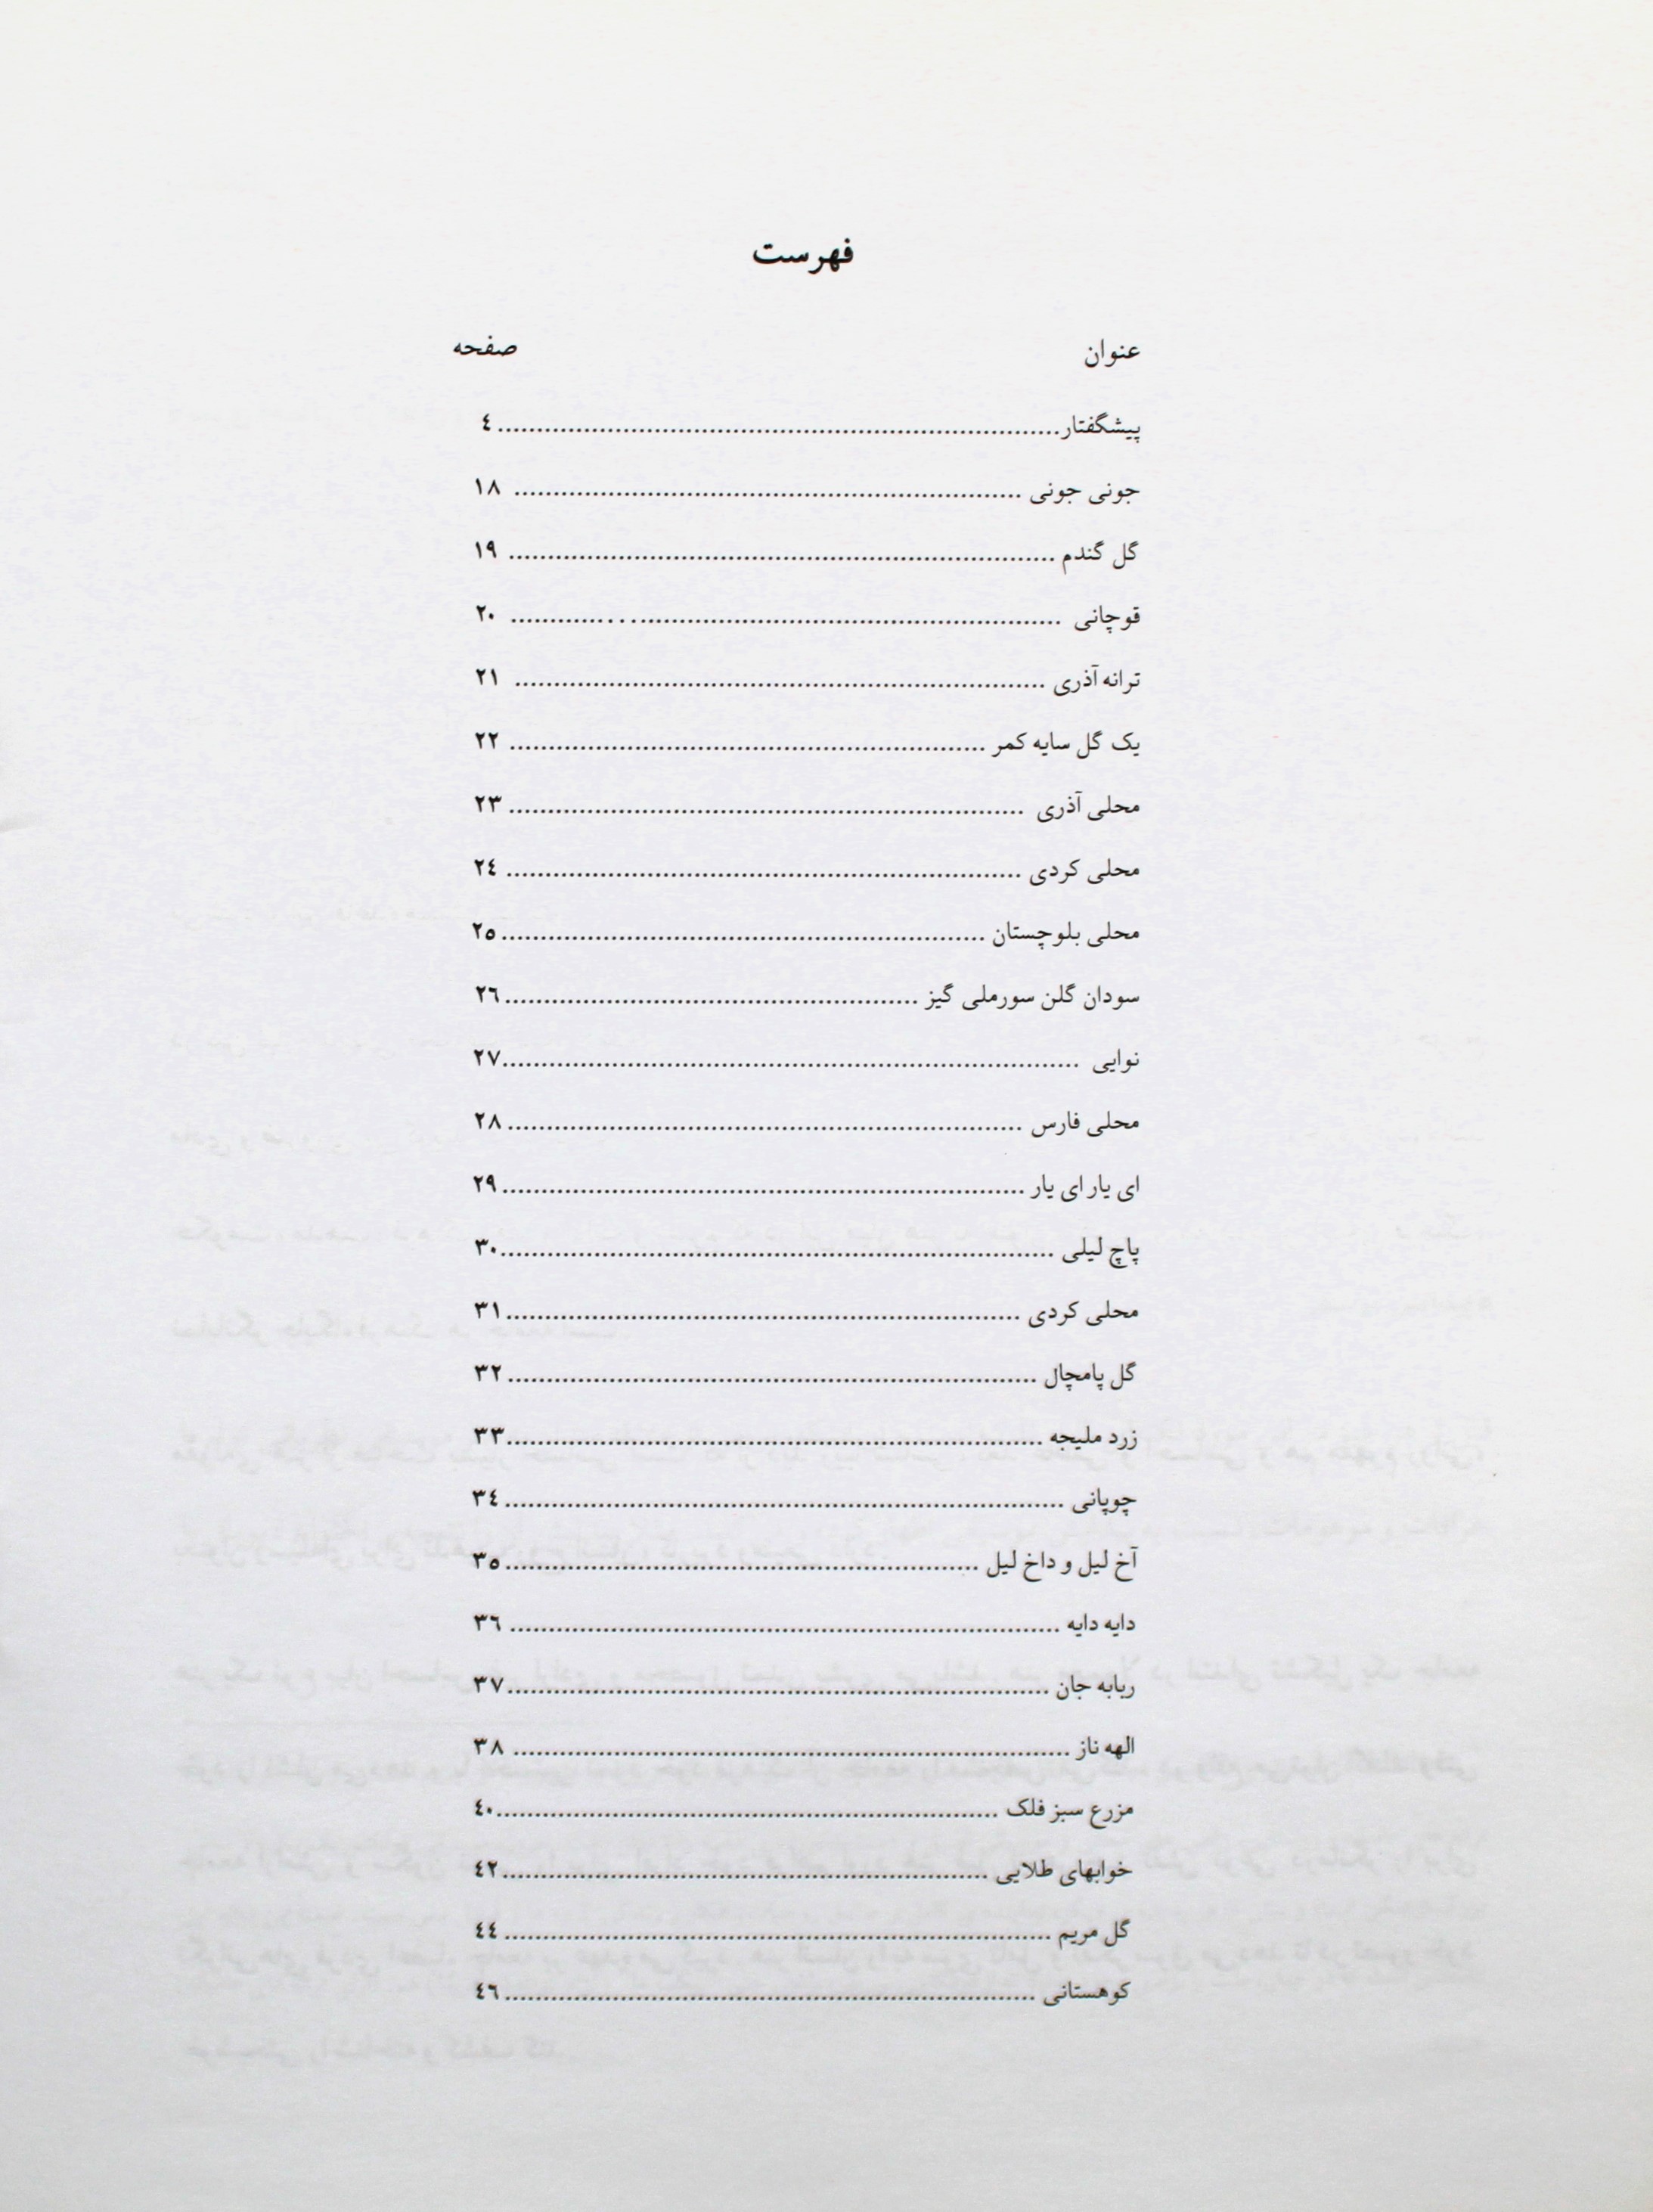 فهرست
عنوان صفحه
پیشگفتار........................................................................ ٤
جونی جونی ................................................................. ١٨
گل گندم ...................................................................... ١٩
قوچانی ....................................................................... ٢٠
ترانه آذری .................................................................... ٢١
یک گل سایه کمر ............................................................. ٢٢
محلی آذری .................................................................. ٢٣
محلی کردی .................................................................. ٢٤
محلی بلوچستان .............................................................. ٢٥
سودان گلن سورملی گیز ..................................................... ٢٦
نوایی .......................................................................... ٢٧
محلی فارس .................................................................. ٢٨
ای یار ای یار ................................................................... ٢٩
پاچ لیلی ....................................................................... ٣٠
محلی کردی .................................................................. ٣١
گل پامچال .................................................................... ٣٢
زرد ملیجه ..................................................................... ٣٣
چوپانی ........................................................................ ٣٤
آخ لیل و داخ لیل ............................................................. ٣٥
دایه دایه ....................................................................... ٣٦
ربابه جان ...................................................................... ٣٧
الهه ناز ........................................................................ ٣٨
مزرع سبز فلک ................................................................ ٤٠
خوابهای طلایی ............................................................... ٤٢
گل مریم ....................................................................... ٤٤
کوهستانی .................................................................... ٤٦